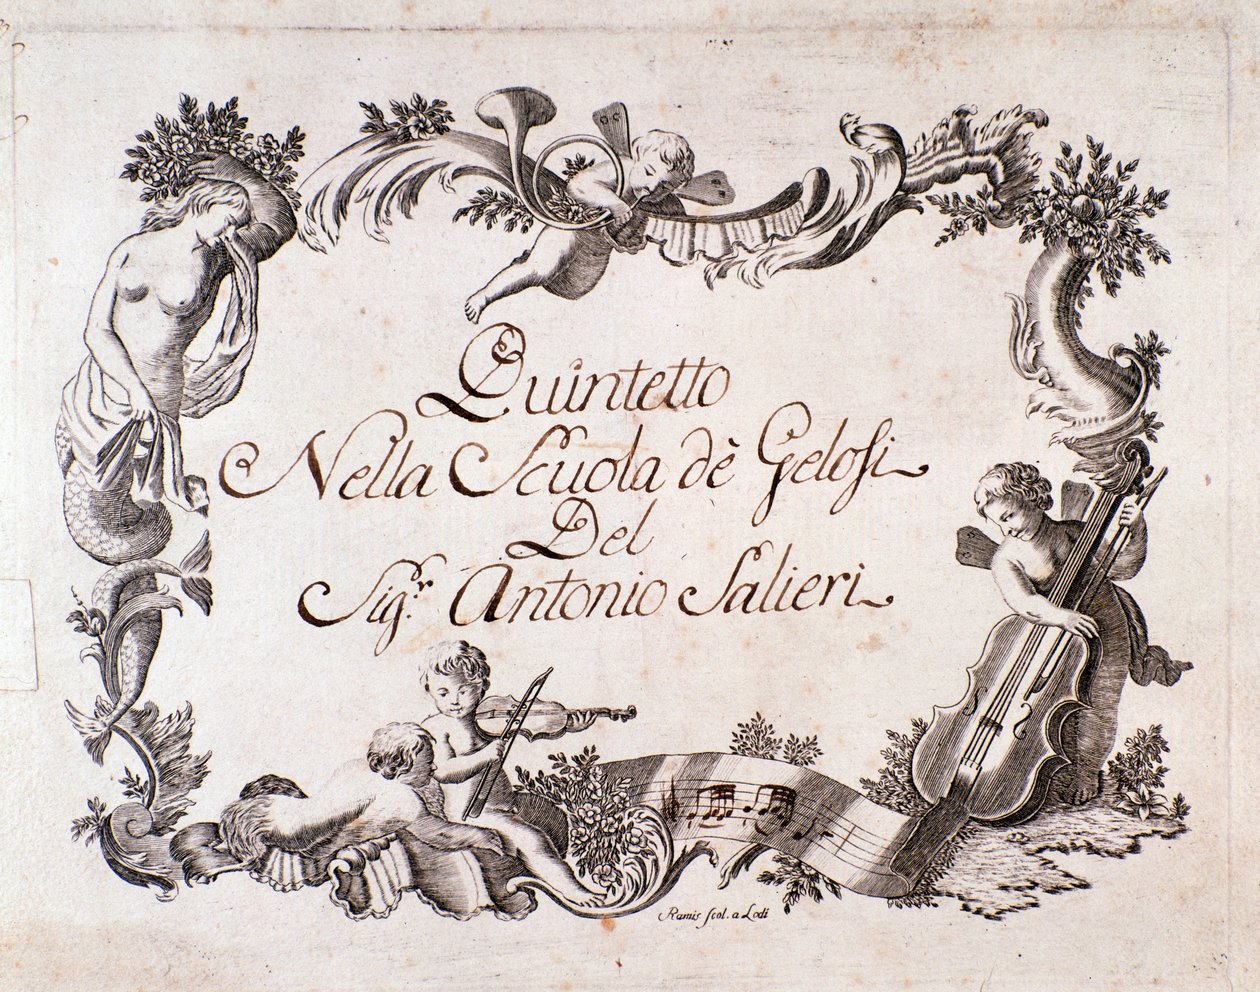 Quintetto
Nella Scuola dè Gelosi
Del
Sig.r Antonio Salieri
Ramis scol. a Lodi